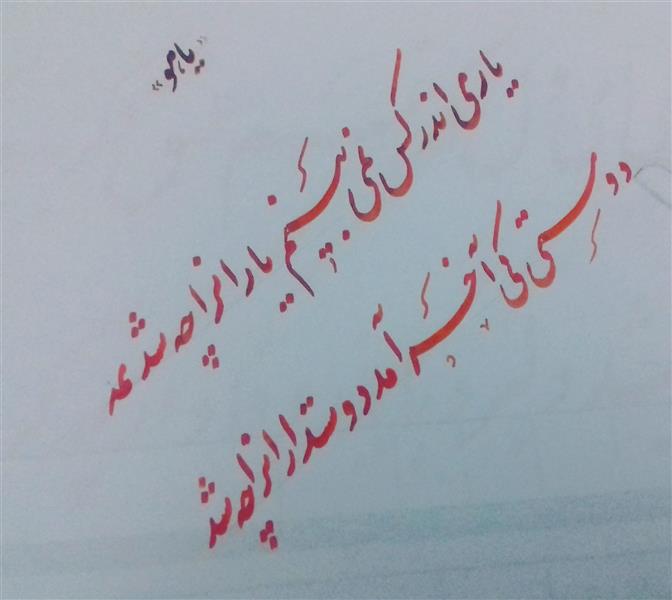 "یاهو"
یاری اندر کس نمی بینیم یاران را چه شد
دوستی کی آخر آمد دوستداران را چه شد